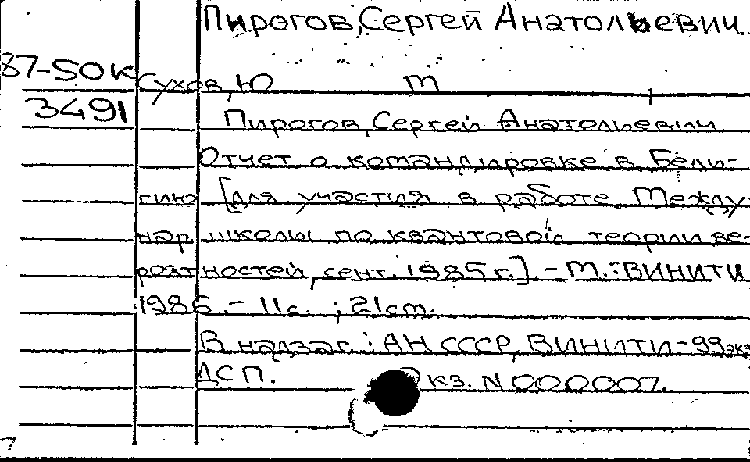 Пирогов, Сергей Анатольевич
87-50к Сухов, Ю m
3491
Пирогов, Сергей Анатольевич
Отчет о командировке в Бельгию
[для участия в работе Междунар
школы по квантовой теории ве-
роятностей, сент. 1985 г.] - М.: ВИНИТИ
1986. - 11 с.; 21 cm.
В надзаг.: АН СССР, ВИНИТИ - 99 экз
ДСП. Экз. N 000007.